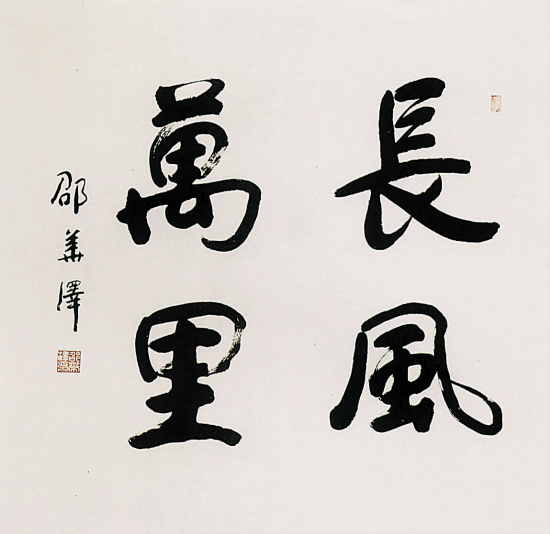 長風
萬里
邵華澤